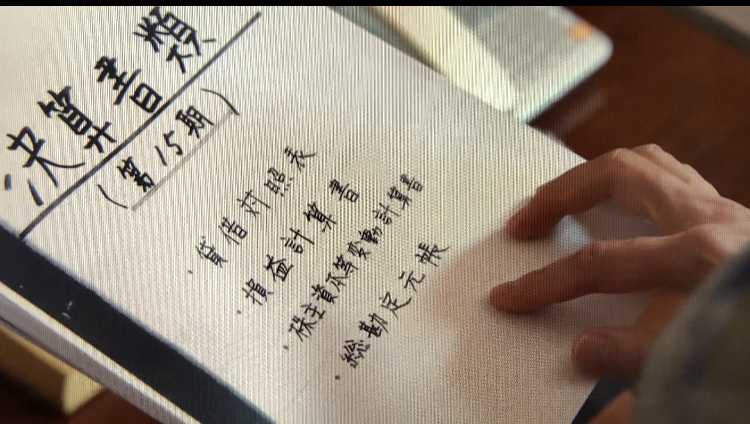 決算書類
(第15期)
・貸借対照表
・損益計算書
・株主資本等変動計算書
・総勘定元帳